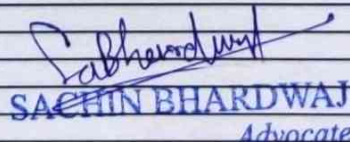 SACHIN BHARDWAJ
Advocate